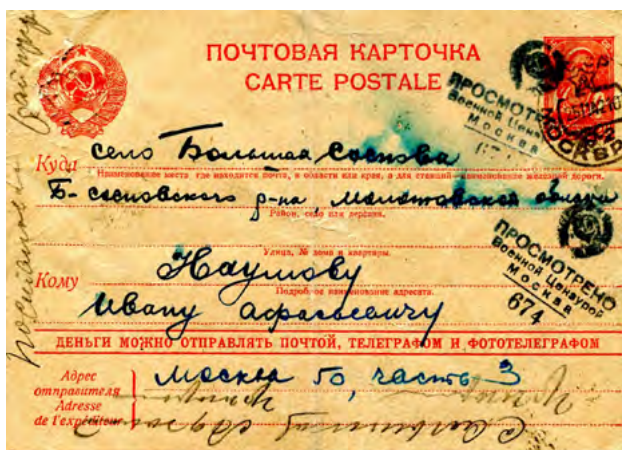 ПОЧТОВАЯ КАРТОЧКА
CARTE POSTALE
ПРОСМОТРЕНО
Военной Цензурой
Москва
МОСКВА
Куда село Большая Соснова
Наименование места, где находится почта, и области или края, а для станций наименование железной дороги.
Б-сосновского р-на, Молотовской области
Район, село или деревня.
Улица, № дома и квартиры.
Кому Наумову
Подробное наименование адресата.
Ивану Афанасьевичу
ПРОСМОТРЕНО
Военной Цензурой
Москва
674
ДЕНЬГИ МОЖНО ОТПРАВЛЯТЬ ПОЧТОЙ, ТЕЛЕГРАФОМ И ФОТОТЕЛЕГРАФОМ
Адрес отправителя
Adresse de l'expéditeur
Москва 50, часть 3